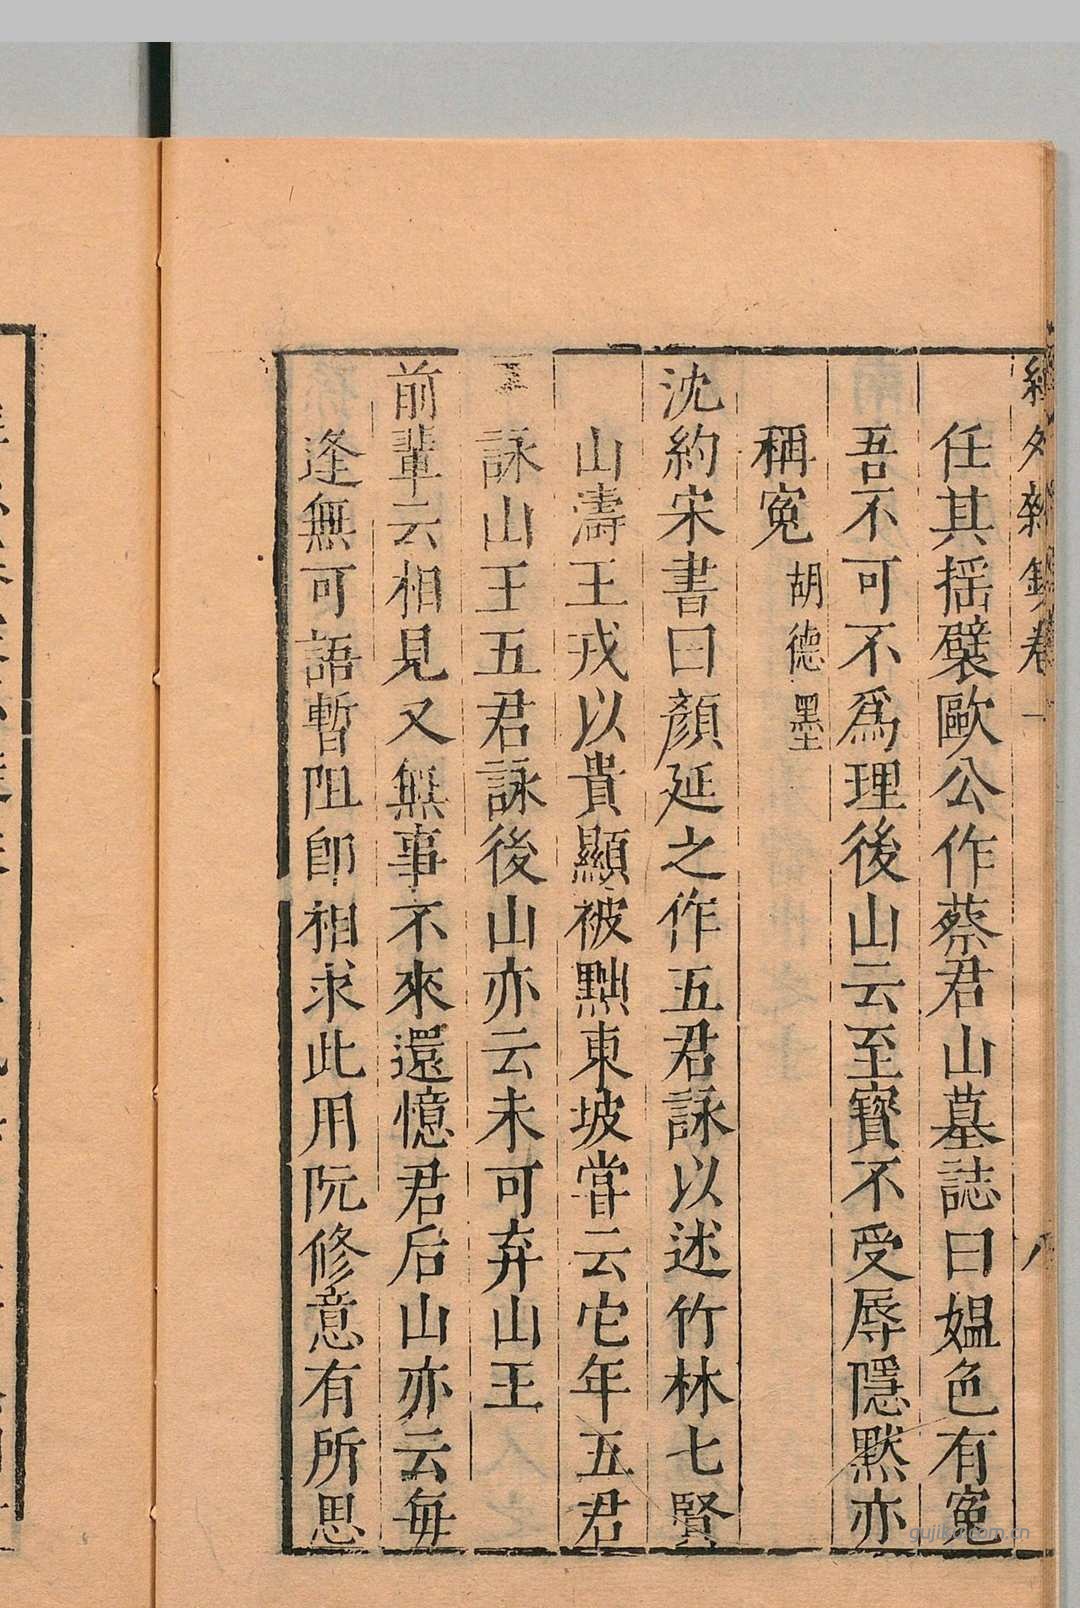 經外雜鈔卷一 八
任其揺襞歐公作蔡君山墓誌曰媪色有寃
吾不可不爲理後山云至寳不受辱隱黙亦
稱寃 胡德墨
沈約宋書曰顔延之作五君詠以述竹林七賢
山濤王戎以貴顯被黜東坡甞云它年五君
詠山王五君詠後山亦云未可弃山王
前輩云相見又無事不來還憶君后山亦云毎
逢無可語暫阻卽相求此用阮修意有所思
qujiku.com.cn